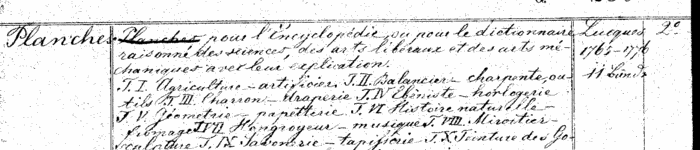 Planches Planches pour l'Encyclopédie ou pour le dictionnaire Lucques 2º
raisonné des sciences, des arts libéraux et des arts mé- 1765-1776
chaniques avec leur explication. 11 Bände
T. I Agriculture - artificier, T. II. Balancier - charpente, ou-
tils T. III. Charron - draperie T. IV Ebéniste - horlogerie
T. V. Géometrie - papetterie T. VI Histoire naturelle -
fromage T. VII Hongroyeur - musique T. VIII. Miroitier -
T. IX Savonerie - tapisserie T. X Teinture des Go-